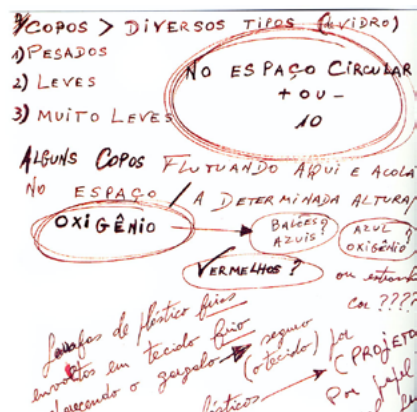 COPOS > DIVERSOS TIPOS (VIDRO)
1) PESADOS
2) LEVES
3) MUITO LEVES
NO ESPAÇO CIRCULAR
+ OU -
10
ALGUNS COPOS FLUTUANDO AQUI E ACOLÁ
NO ESPAÇO / A DETERMINADA ALTURA
OXIGÊNIO
BALÕES
AZUIS?
AZUL?
OXIGÊNIO
VERMELHOS?
ou
cor ????
de plástico frias
envoltos em tecido frio
o gargalo seguro
(o tecido) por
(PROJETO
Por papel